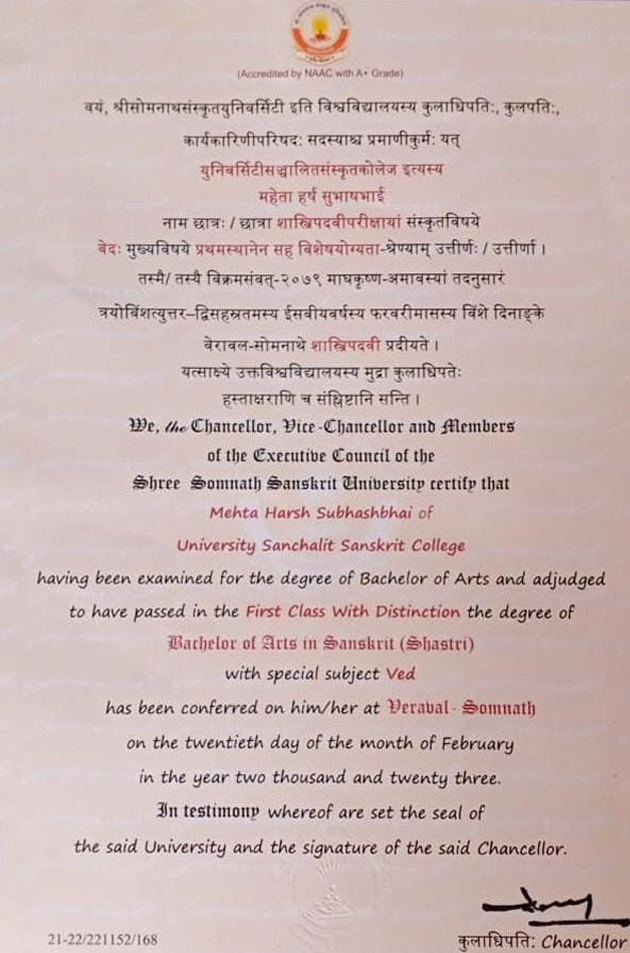 (Accredited by NAAC with A+ Grade)
वयं, श्रीसोमनाथसंस्कृतयुनिवर्सिटी इति विश्वविद्यालयस्य कुलाधिपतिः, कुलपतिः,
कार्यकारिणीपरिषदः सदस्याश्च प्रमाणीकुर्मः यत्
युनिवर्सिटीसञ्चालितसंस्कृतकोलेज इत्यस्य
महेता हर्ष सुभाषभाई
नाम छात्रः / छात्रा शास्त्रिपदवीपरीक्षायां संस्कृतविषये
वेदः मुख्यविषये प्रथमस्थानेन सह विशेषयोग्यता-श्रेण्याम् उत्तीर्णः / उत्तीर्णा ।
तस्मै/ तस्यै विक्रमसंवत्-२०७९ माघकृष्ण-अमावस्यां तदनुसारं
त्रयोविंशत्युत्तर–द्विसहस्रतमस्य ईसवीयवर्षस्य फरवरीमासस्य विंशे दिनाङ्के
वेरावल-सोमनाथे शास्त्रिपदवी प्रदीयते ।
यत्साक्ष्ये उक्तविश्वविद्यालयस्य मुद्रा कुलाधिपतेः
हस्ताक्षराणि च संश्लिष्टानि सन्ति ।
We, the Chancellor, Vice-Chancellor and Members
of the Executive Council of the
Shree Somnath Sanskrit University certify that
Mehta Harsh Subhashbhai of
University Sanchalit Sanskrit College
having been examined for the degree of Bachelor of Arts and adjudged
to have passed in the First Class With Distinction the degree of
Bachelor of Arts in Sanskrit (Shastri)
with special subject Ved
has been conferred on him/her at Veraval- Somnath
on the twentieth day of the month of February
in the year two thousand and twenty three.
In testimony whereof are set the seal of
the said University and the signature of the said Chancellor.
21-22/221152/168
कुलाधिपतिः Chancellor